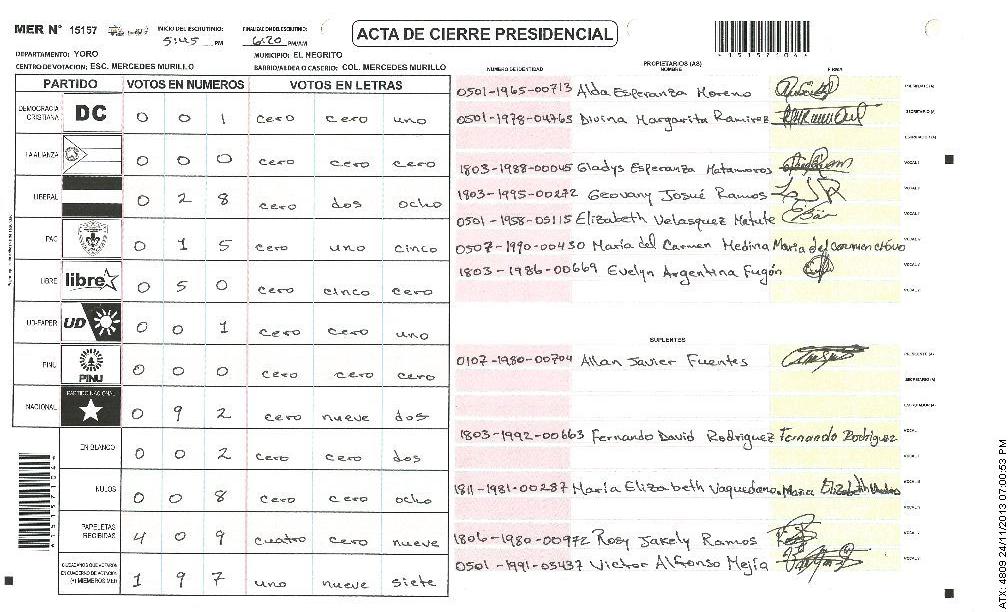 MER N° 15157 INICIO DEL ESCRUTINIO: 5:45 PM FINALIZACION DEL ESCRUTINIO: 6:20 PM/AM
ACTA DE CIERRE PRESIDENCIAL
DEPARTAMENTO: YORO MUNICIPIO: EL NEGRITO
CENTRO DE VOTACION: ESC. MERCEDES MURILLO BARRIO/ALDEA O CASERIO: COL. MERCEDES MURILLO
PARTIDO VOTOS EN NUMEROS VOTOS EN LETRAS
DEMOCRACIA CRISTIANA DC 0 0 1 cero cero uno
LA ALIANZA 0 0 0 cero cero cero
LIBERAL 0 2 8 cero dos ocho
PAC 0 1 5 cero uno cinco
LIBRE libre 0 5 0 cero cinco cero
UD-FAPER UD 0 0 1 cero cero uno
PINU PINU 0 0 0 cero cero cero
NACIONAL PARTIDO NACIONAL 0 9 2 cero nueve dos
EN BLANCO 0 0 2 cero cero dos
NULOS 0 0 8 cero cero ocho
PAPELETAS RECIBIDAS 4 0 9 cuatro cero nueve
CIUDADANOS QUE VOTARON EN CUADERNO DE VOTACION (+) MIEMBROS MER 1 9 7 uno nueve siete
PROPIETARIOS (AS)
NUMERO DE IDENTIDAD NOMBRE FIRMA
0501-1965-00713 Alda Esperanza Moreno PRESIDENTE (A)
0501-1978-04765 Divina Margarita Ramirez SECRETARIO (A)
ESCRUTADOR (A)
1803-1988-00045 Gladys Esperanza Matamoros VOCAL 1
1903-1995-00272 Geovany Josué Ramos
0501-1958-05115 Elizabeth Velasquez Matute
0507-1990-00430 Maria del Carmen Medina Maria del carmen
1803-1986-00669 Evelyn Argentina Fugón
SUPLENTES
0107-1980-00704 Allan Javier Fuentes PRESIDENTE (A)
SECRETARIO (A)
ESCRUTADOR (A)
1803-1992-00663 Fernando David Rodriguez Fernando Rodriguez
1811-1981-00287 Maria Elizabeth Vaquedano. Maria Elizabeth
1806-1980-00972 Rosy Jakely Ramos
0501-1991-03437 Victor Alfonso Mejía
ATX: 4809 24/11/2013 07:00:53 PM